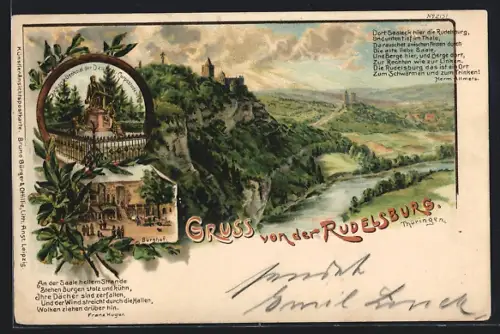 No 2157
Dort Saaleck hier die Rudelsburg,
Und unten tief im Thale,
Da rauschet zwischen Felsen durch
Die alte liebe Saale,
Und Berge hier, und Berge dort,
Zur Rechten wie zur Linken,
Die Rudelsburg das ist ein Ort
Zum Schwärmen und zum Trinken!
Herm. Allmers.
Künstler-Ansichtspostkarte. Bruno Bürger & Ottillie, Lith. Anst. Leipzig.
Burghof.
GRUSS VON DER RUDELSBURG.
Thüringen.
An der Saale hellem Strande
Stehen Burgen stolz und kühn,
Ihre Dächer sind zerfallen,
Und der Wind streicht durch die Hallen,
Wolken ziehen drüber hin.
Franz Kugler.
sendet
Emil